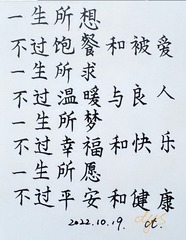 一生所想
不过饱餐和被爱
一生所求
不过温暖与良人
一生所梦
不过幸福和快乐
一生所愿
不过平安和健康
2022.10.19.